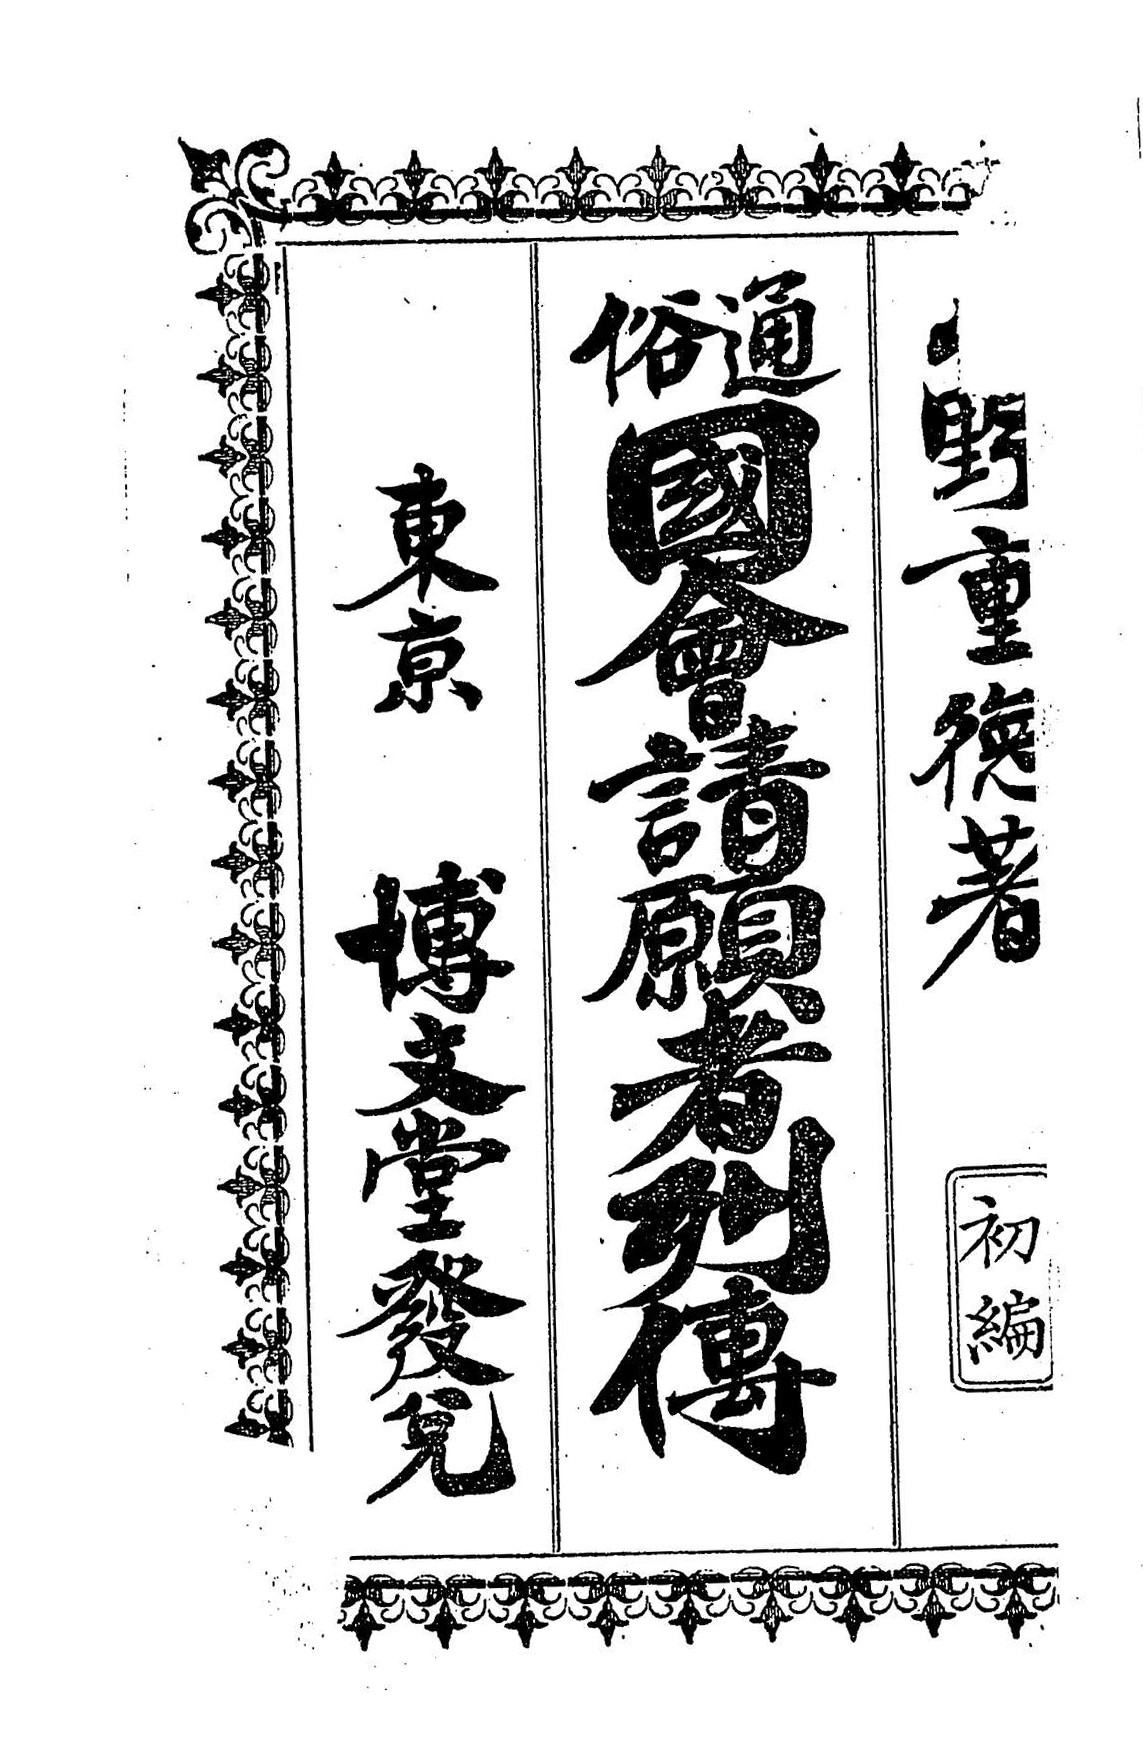 野重德著
初編
通俗
國會請願者列傳
東京 博文堂發兌